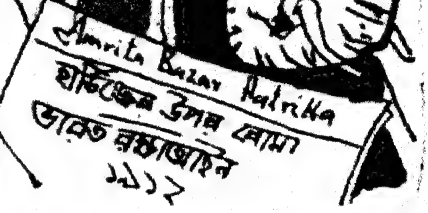 Amrita Bazar Patrika
হার্ডিঞ্জের উপর বোমা
ভারত রক্ষা আইন
১৯১২